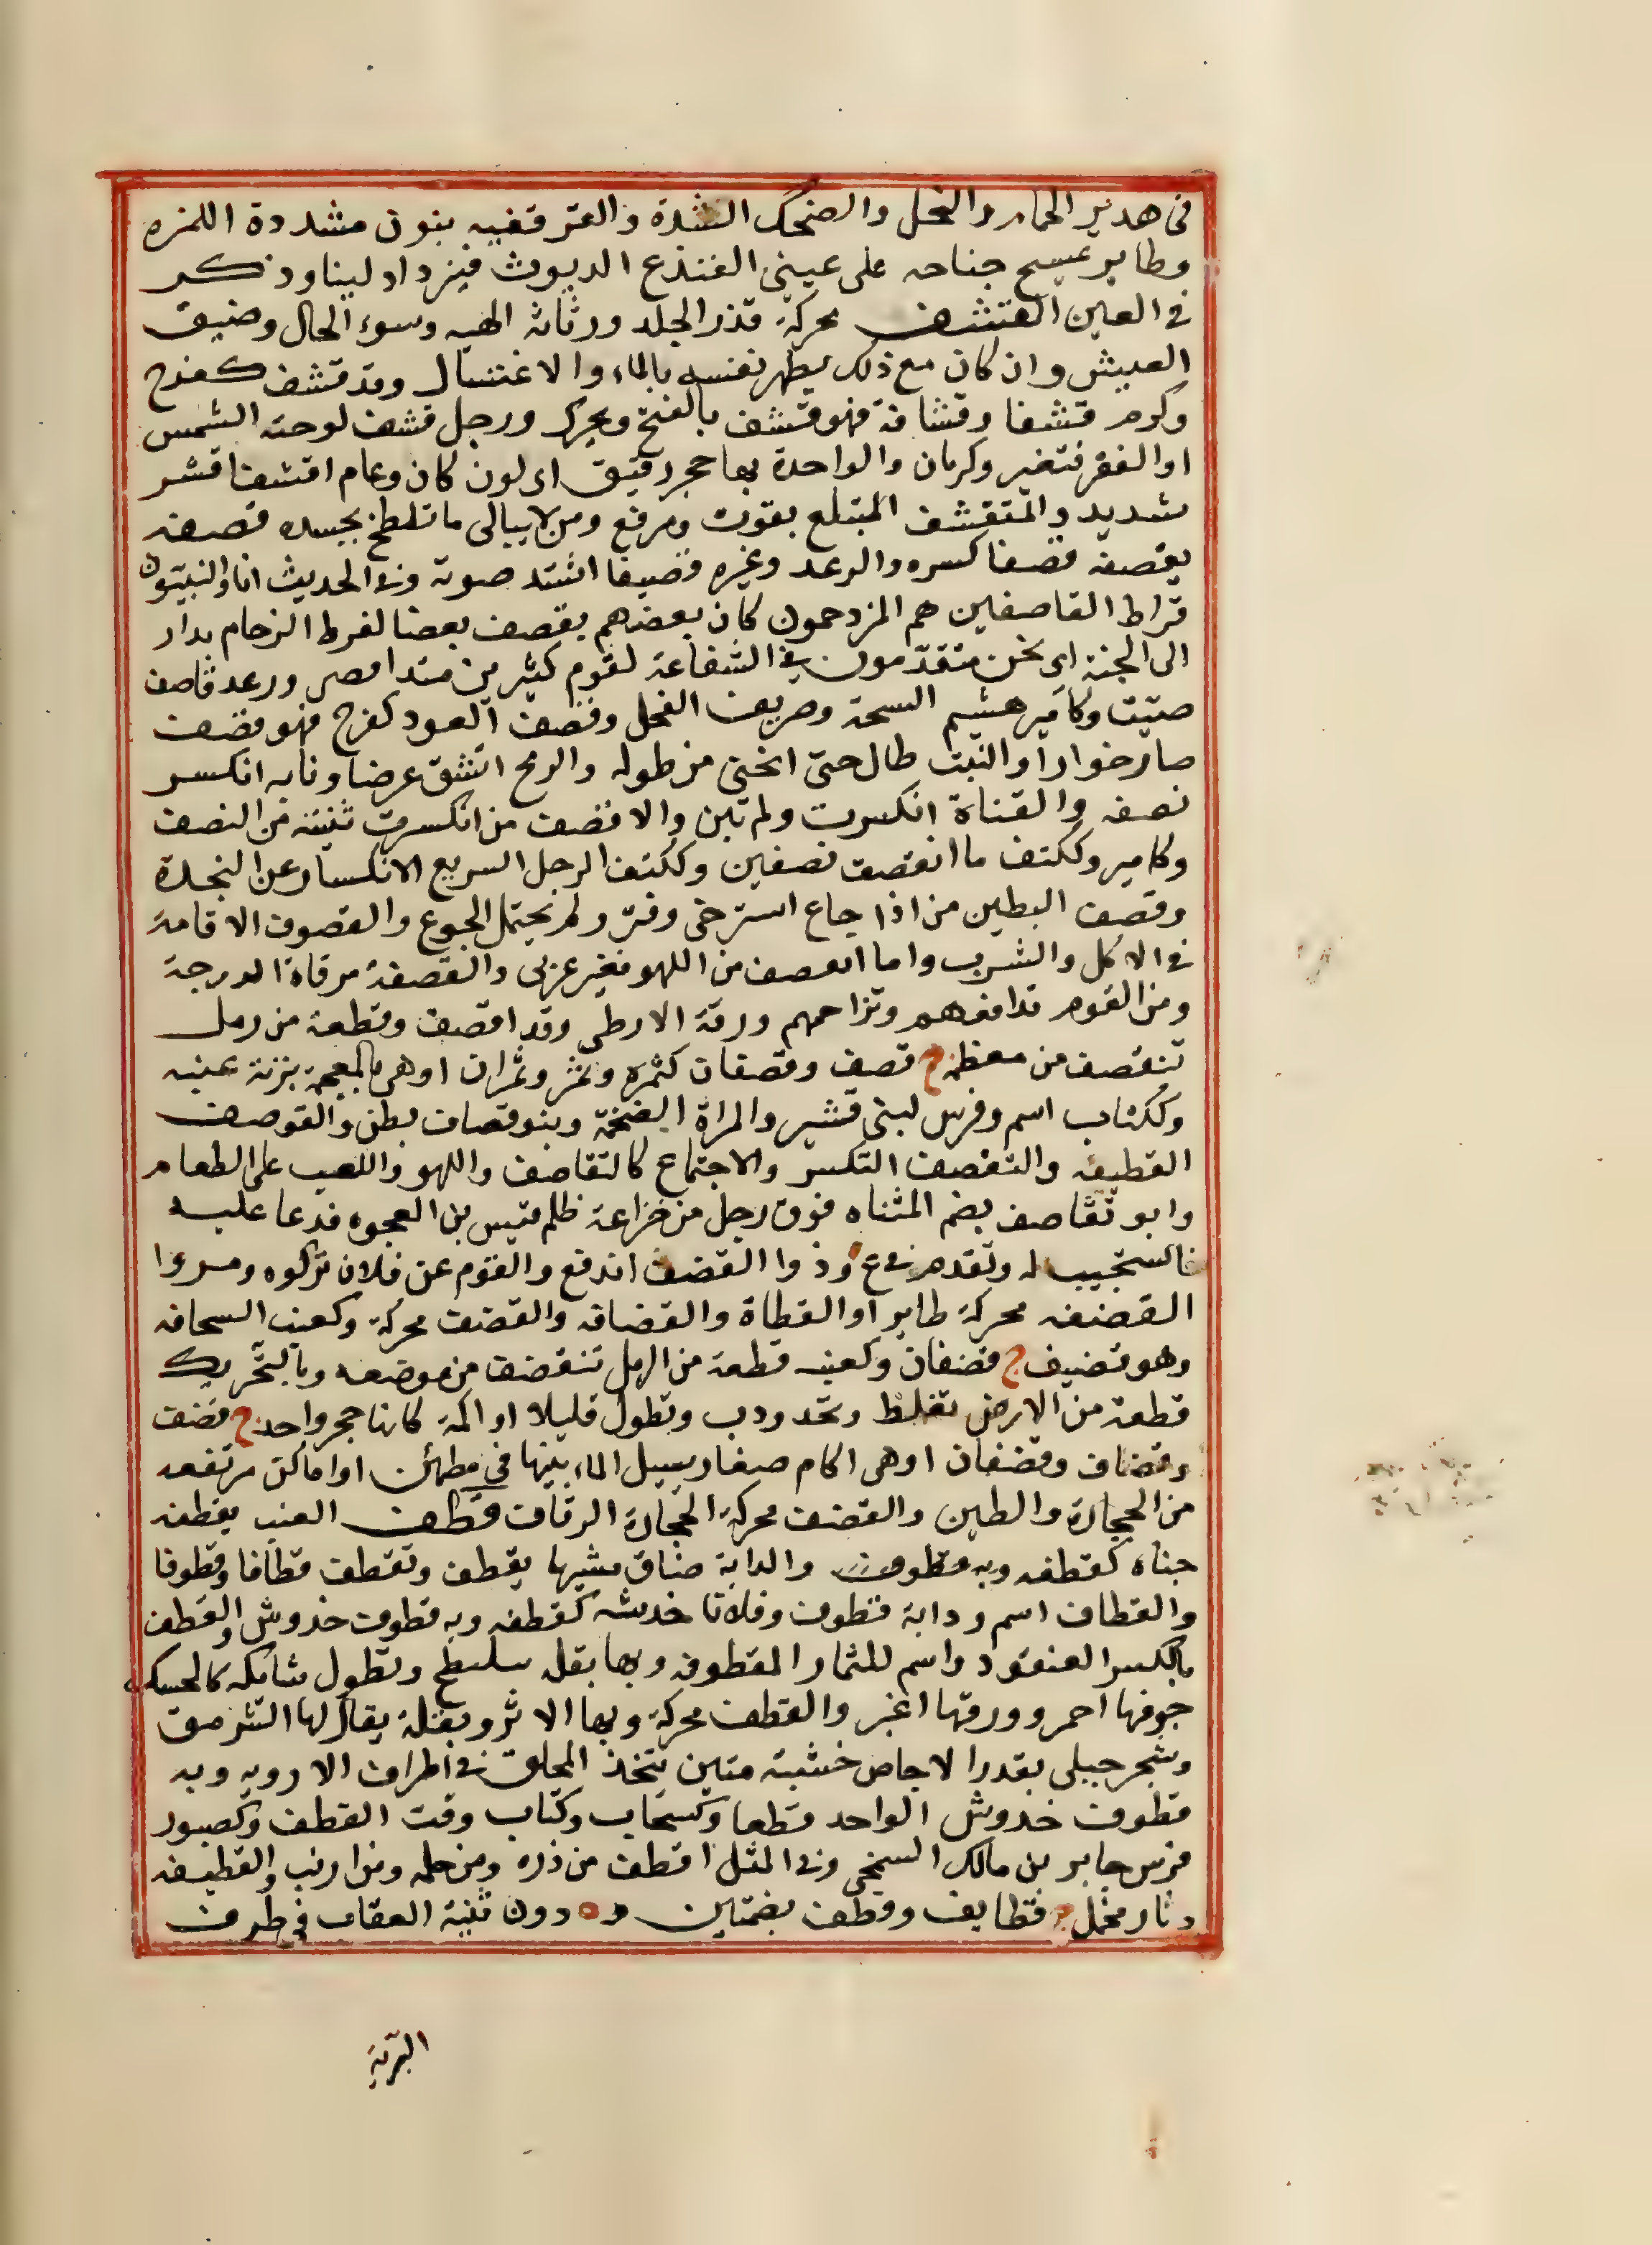 فى هدير الحمام والفحل والضحك الشدة والقرقفنه بنون مشددة اللمزه
وطاير يمسح جناحه على عينى القنذع الديوث فيزداد لينا وذكر
فى العين القشف محركة قذر الجلد ورثاثة الهيه وسوء الحال وضيق
العيش وان كان مع ذلك يطهر نفسه بالماء والاغتسال وقد قشف كفرح
وكرم قشفا وقشافة فهو قشف بالفتح ويحرك ورجل قشف لوحته الشمس
او الفقر فتغير وكرمان والواحدة بها حجر رقيق اى لون كان وعام اقشف اقشر
شديد والمتقشف المتبلغ بقوت ومرقع ومن لا يبالى ما تلطخ بجسده قصفه
يقصفه قصفا كسره والرعد وغيره قصيفا اشتد صوته وفى الحديث انا والنبيّون
فرّاط القاصفين هم المزدحمون كان بعضهم يقصف بعضا لفرط الزحام بدار
الى الجنة اى نحن متقدّمون فى الشفاعة لقوم كثيرين متدافعين ورعد قاصف
صيّت وكامير هشيم السحة وصريف الفحل وقصف العود كفرح فهو قصف
صار خوارا والنبت طال حتى انحنى من طوله والرمح انشق عرضا ونابه انكسر
نصفه والقناة انكسرت ولم تبن والاقصف من انكسرت ثنيته من النصف
وكامير وككتف ما انقصف نصفين وككتف الرجل السريع الانكسار عن النجدة
وقصف البطين من اذا جاع استرخى وفتر ولم يحتمل الجوع والقصوف الاقامة
فى الاكل والشرب واما القصف من اللهو فغير عربى والقصفة مرقاة الدرجة
ومن القوم تدافعهم وتزاحمهم ورقة الارطى وقد اقصف وقطعة من رمل
تنقصف من معظمه ج قصف وقصفان كثمره وثمر وثمران او هى بالمعجمة بزنة عنبه
وككتاب اسم وفرس لبنى قشير والمراة الضخمة وبنو قصاف بطن والقوصف
القطيفه والتقصف التكسر والاجتماع كالتقاصف واللهو واللعب على الطعام
وابو تقاصف بضم المثناه فوق رجل من خزاعة ظلم قيس بن العجوه فدعا عليه
فاستجيب له وتقدم فى ع وذ وا القصف اندفع والقوم عن فلان تركوه ومروا
القضفه محركة طاير او القطاة والقضافه والقضف محركة وكعنب السحافه
وهو قضيف ج قضفان وكعنب قطعة من الرمل تنقضف من موضعه وبالتحريك
قطعة من الارض تغلظ وتحدودب وتطول قليلا او اكمة كانها حجر واحد ج قضف
وقضاف وقضفان او هى اكام صغار يسيل الماء بينها فى مطمئن او اماكن مرتفعه
من الحجارة والطين والقضف محركة الحجارة الرقاق قطف العنب يقطفه
جناه كقطفه وبه قطوف والدابة ضاق مشيها يقطف وتقطف قطافا وقطوفا
والقطاف اسم ودابة قطوف وفلانا خدشه كقطفه وبه قطوف خدوش والقطف
بالكسر العنقود واسم للثمار المقطوفه وبها بقله سلطح وتطول شائكه كالحسك
جوفها احمر وورقها اغبر والقطف محركة وبها الاثر وبقلة يقال لها السرمق
وشجر جبلى بقدر الاجاص خشبه متين يتخذ المحلق فى اطراف الارويه وبه
قطوف خدوش الواحد قطعا وكسحاب وكتاب وقت القطف وكصبور
فرس جابر بن مالك السمخى وفى المثل اقطف من ذره ومن حلمه ومن ارنب والقطيفه
دثار مخمل ج قطايف وقطف بضمتين و ه دون ثنية العقاب فى طرف
البرّيّة